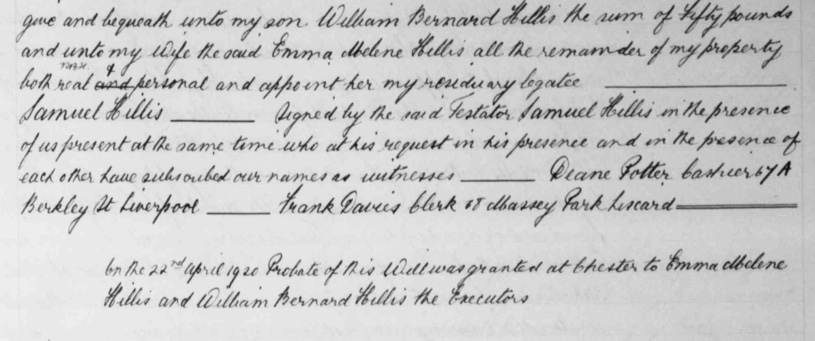 give and bequeath unto my son William Bernard Hillis the sum of Fifty pounds
and unto my Wife the said Emma Melene Hillis all the remainder of my property
both real & personal and appoint her my residuary legatee
Samuel Hillis Signed by the said Testator Samuel Hillis in the presence
of us present at the same time who at his request in his presence and in the presence of
each other have subscribed our names as witnesses Deane Potter Cashier 67A
Berkley St Liverpool Frank Davies Clerk Massey Park Liscard
On the 22nd April 1920 Probate of this Will was granted at Chester to Emma Melene
Hillis and William Bernard Hillis the Executors